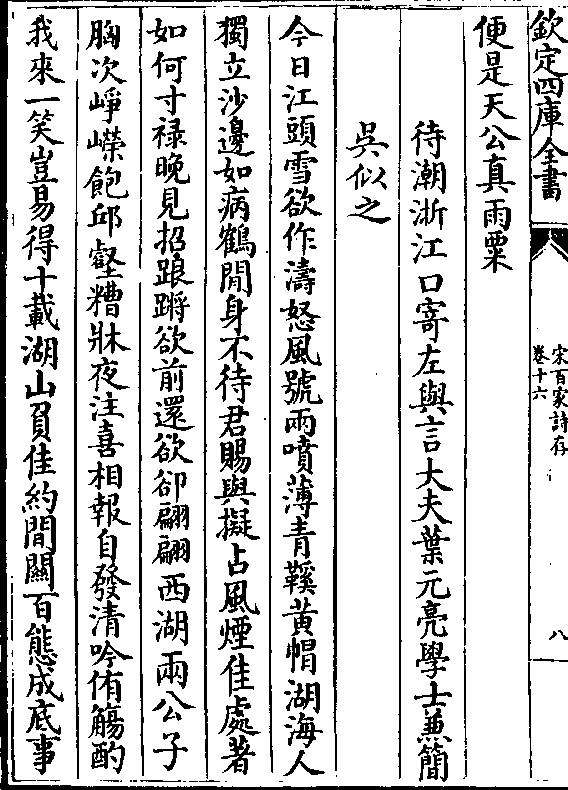 欽定四庫全書
宋百家詩存
卷十六
八
便是天公真雨粟
待潮浙江口寄左與言大夫葉元亮學士兼簡
吳似之
今日江頭雪欲作濤怒風號雨噴薄青鞵黃帽湖海人
獨立沙邊如病鶴閒身不待君賜與擬占風煙佳處著
如何寸祿晚見招踉蹡欲前還欲卻翩翩西湖兩公子
胸次崢嶸飽邱壑糟牀夜注喜相報自發清吟侑觴酌
我來一笑豈易得十載湖山負佳約間關百態成底事